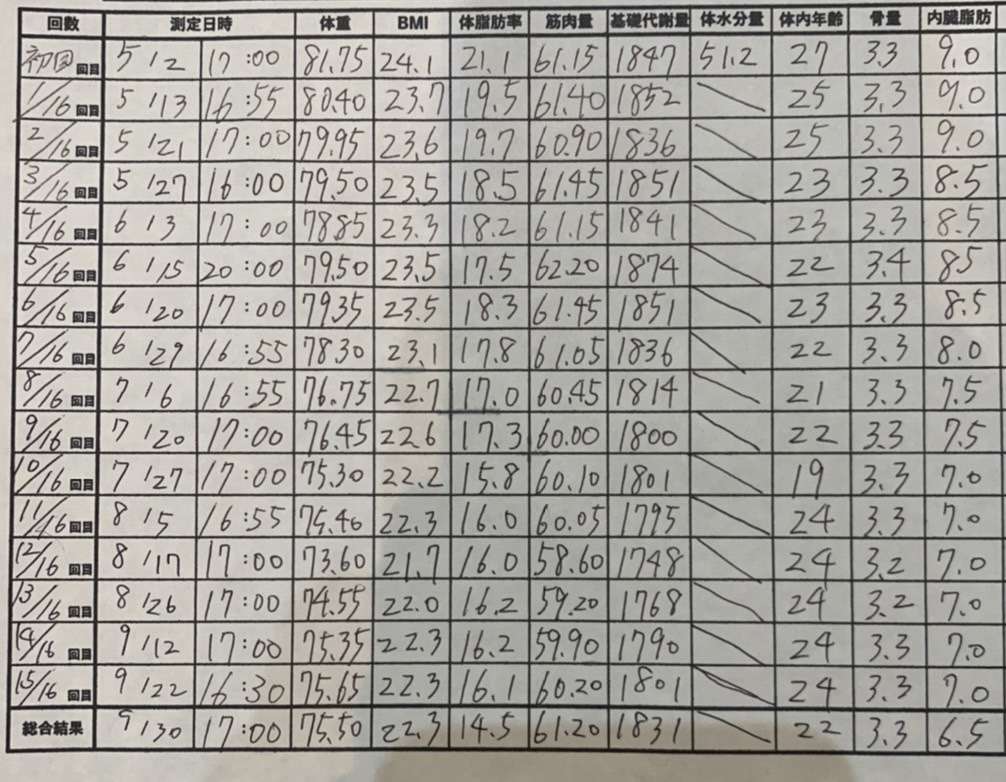 回数 測定日時 体重 BMI 体脂肪率 筋肉量 基礎代謝量 体水分量 体内年齢 骨量 内臓脂肪
初回 回目 5/2 17:00 81.75 24.1 21.1 61.15 1847 51.2 27 3.3 9.0
1/16 回目 5/13 16:55 80.40 23.7 19.5 61.40 1852 25 3.3 9.0
2/16 回目 5/21 17:00 79.95 23.6 19.7 60.90 1836 25 3.3 9.0
3/16 回目 5/27 16:00 79.50 23.5 18.5 61.45 1851 23 3.3 8.5
4/16 回目 6/3 17:00 78.85 23.3 18.2 61.15 1841 23 3.3 8.5
5/16 回目 6/15 20:00 79.50 23.5 17.5 62.20 1874 22 3.4 8.5
6/16 回目 6/20 17:00 79.35 23.5 18.3 61.45 1851 23 3.3 8.5
7/16 回目 6/29 16:55 78.30 23.1 17.8 61.05 1836 22 3.3 8.0
8/16 回目 7/6 16:55 76.75 22.7 17.0 60.45 1814 21 3.3 7.5
9/16 回目 7/20 17:00 76.45 22.6 17.3 60.00 1800 22 3.3 7.5
10/16 回目 7/27 17:00 75.30 22.2 15.8 60.10 1801 19 3.3 7.0
11/16 回目 8/5 16:55 75.40 22.3 16.0 60.05 1795 24 3.3 7.0
12/16 回目 8/17 17:00 73.60 21.7 16.0 58.60 1748 24 3.2 7.0
13/16 回目 8/26 17:00 74.55 22.0 16.2 59.20 1768 24 3.2 7.0
14/16 回目 9/12 17:00 75.35 22.3 16.2 59.90 1790 24 3.3 7.0
15/16 回目 9/22 16:30 75.65 22.3 16.1 60.20 1801 24 3.3 7.0
総合結果 9/30 17:00 75.50 22.3 14.5 61.20 1831 22 3.3 6.5